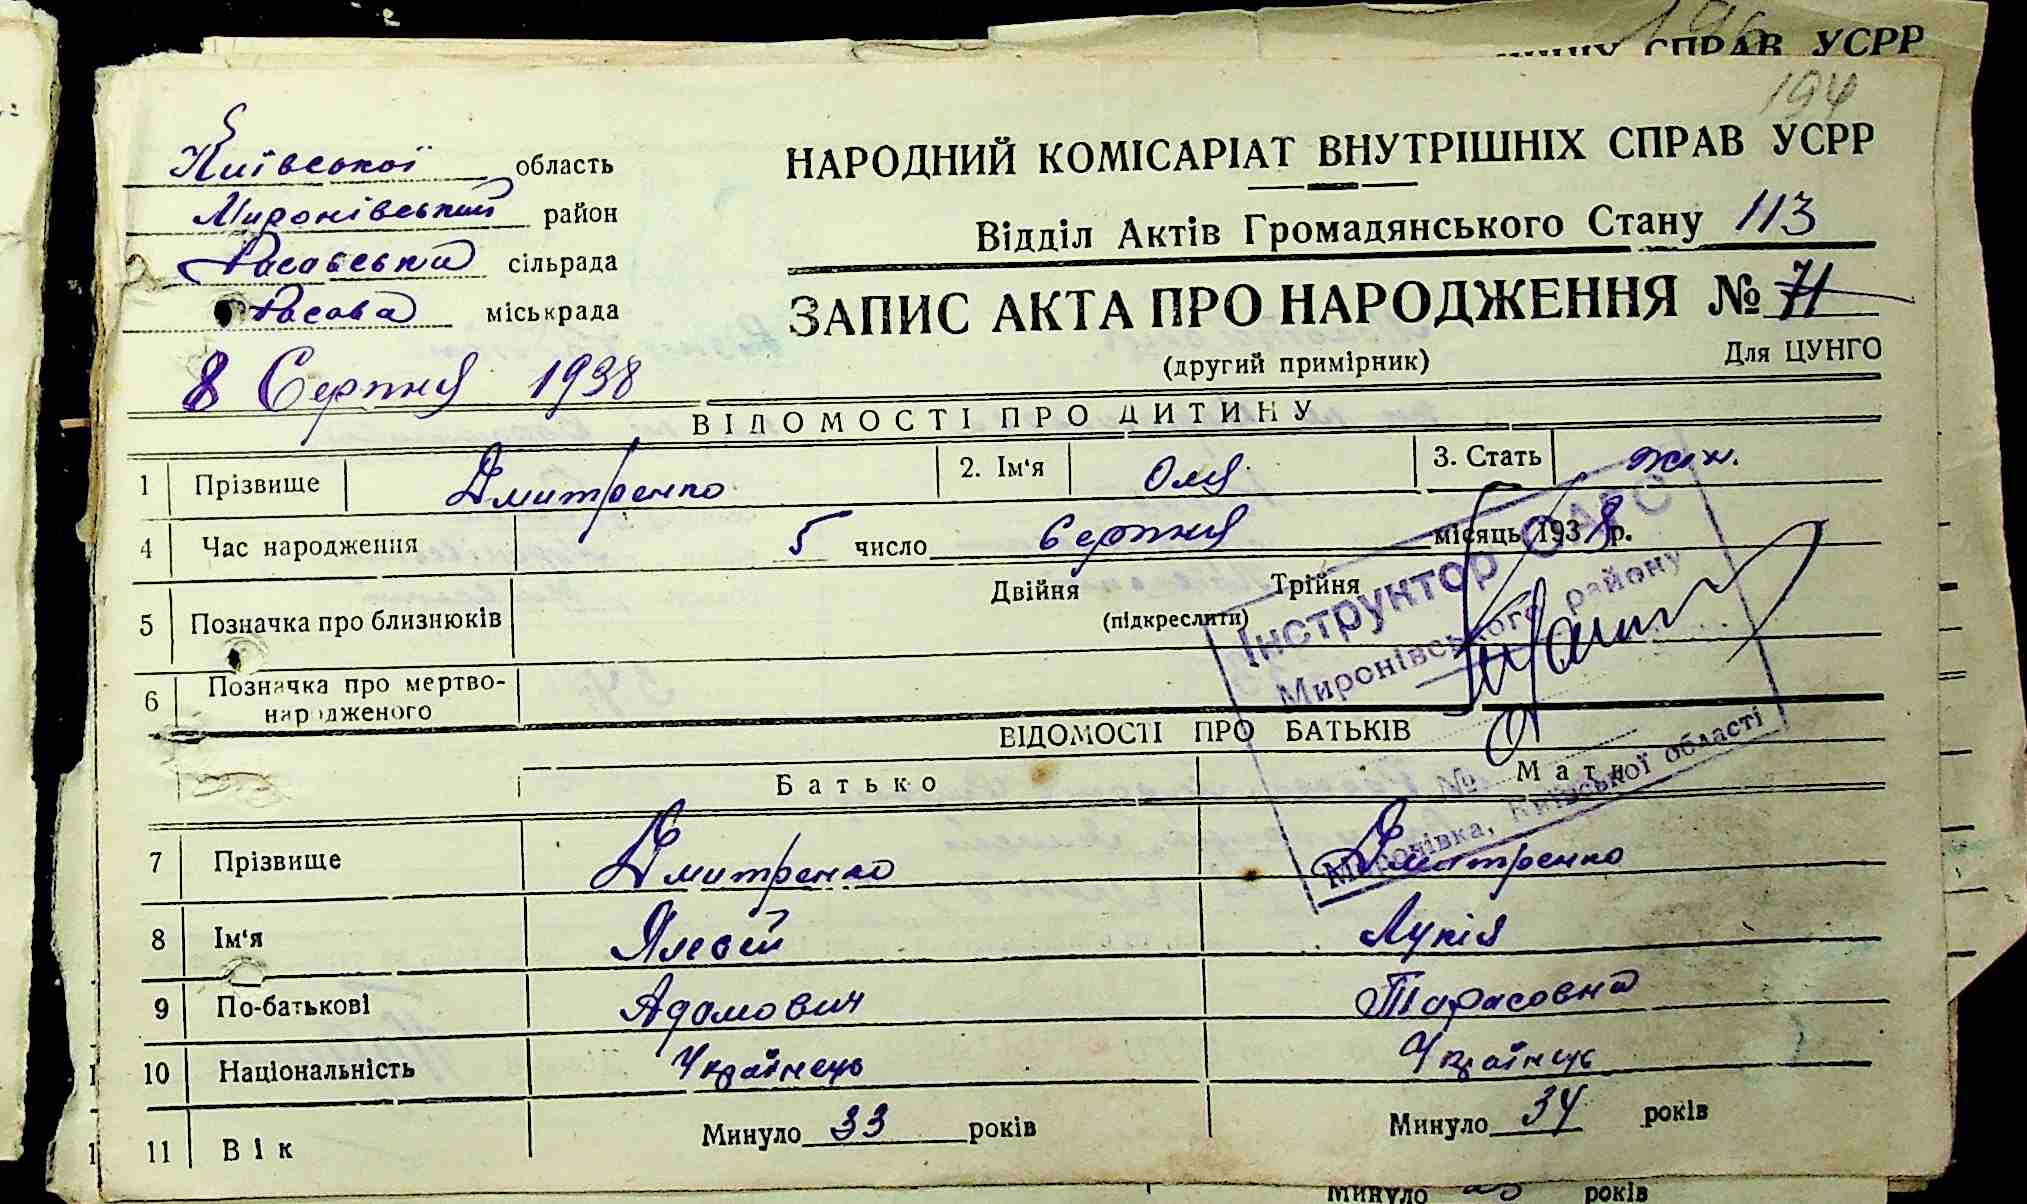 СПРАВ УСРР
194
Київської область
Миронівський район
Расавський сільрада
Расава міськрада
8 Серпня 1938
НАРОДНИЙ КОМІСАРІАТ ВНУТРІШНІХ СПРАВ УСРР
Відділ Актів Громадянського Стану 113
ЗАПИС АКТА ПРО НАРОДЖЕННЯ № 71
(другий примірник)
Для ЦУНГО
ВІДОМОСТІ ПРО ДИТИНУ
1 Прізвище Дмитренко 2. Ім'я Оля 3. Стать жін.
4 Час народження 5 число Серпня місяць 1938 р.
5 Позначка про близнюків Двійня Трійня
(підкреслити)
6 Позначка про мертво-
народженого
Інструктор ОАГС
Миронівського району
№
Миронівка, Київської області
ВІДОМОСТІ ПРО БАТЬКІВ
Батько Мати
7 Прізвище Дмитренко Дмитренко
8 Ім'я Ялесій Лукія
9 По-батькові Адамович Тарасовна
10 Національність Українець Українець
11 Вік Минуло 33 років Минуло 34 років
Минуло років